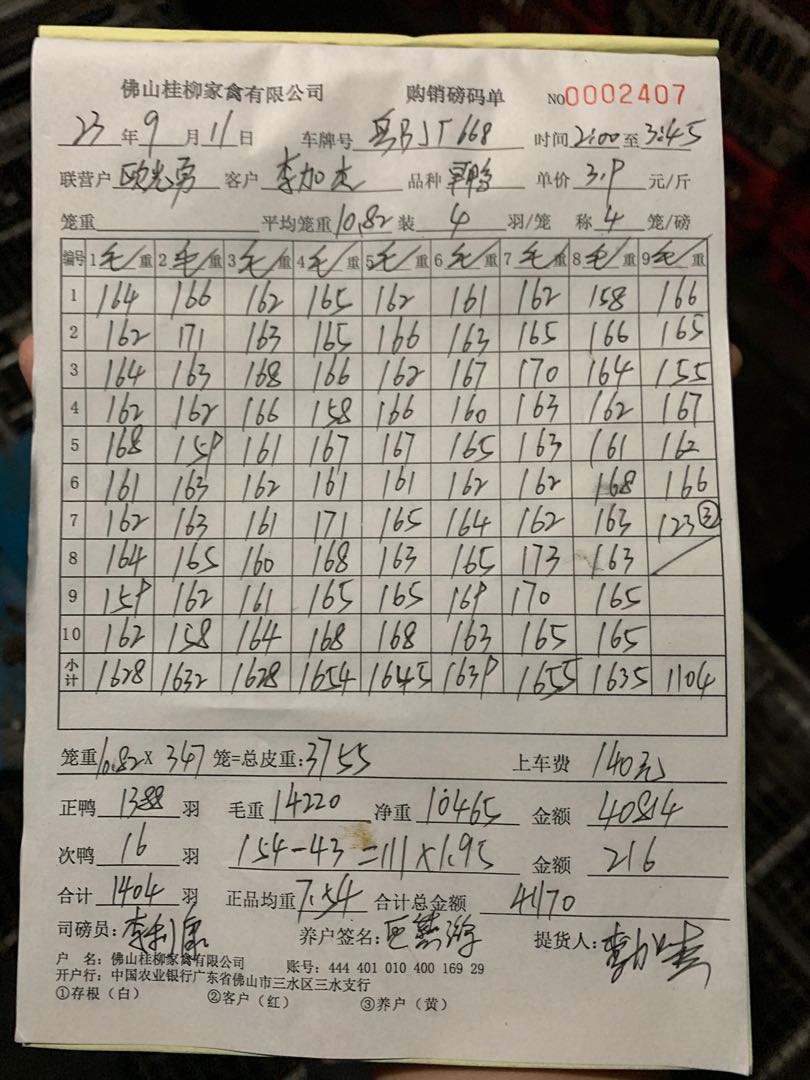 佛山桂柳家禽有限公司 购销磅码单 NO0002407
23年9月11日 车牌号 粤BJT668 时间2:00至3:45
联营户 欧光勇 客户 李加杰 品种 单价 3.9 元/斤
笼重 平均笼重10.82装 4 羽/笼 称 4 笼/磅
编号 1毛/重 2毛/重 3毛/重 4毛/重 5毛/重 6毛/重 7毛/重 8毛/重 9毛/重
1 164 166 162 165 162 161 162 158 166
2 162 171 163 165 166 163 165 166 165
3 164 163 168 166 162 167 170 164 155
4 162 162 166 158 166 160 163 162 167
5 168 159 161 167 167 165 163 161 162
6 161 163 162 161 161 162 162 168 166
7 162 163 161 171 165 164 162 163 123③
8 164 165 160 168 163 165 173 163
9 159 162 161 165 165 169 170 165
10 162 158 164 168 168 163 165 165
小计 1628 1632 1628 1654 1645 1639 1655 1635 1104
笼重10.82X 347 笼=总皮重:3755 上车费 140元
正鸭 1388 羽 毛重 14220 净重 10465 金额 40814
次鸭 16 羽 154-43=111X1.95 金额 216
合计 1404 羽 正品均重7.54 合计总金额 41170
司磅员: 养户签名: 提货人:
户 名: 佛山桂柳家禽有限公司 账号: 444 401 010 400 169 29
开户行: 中国农业银行广东省佛山市三水区三水支行
①存根（白） ②客户（红） ③养户（黄）